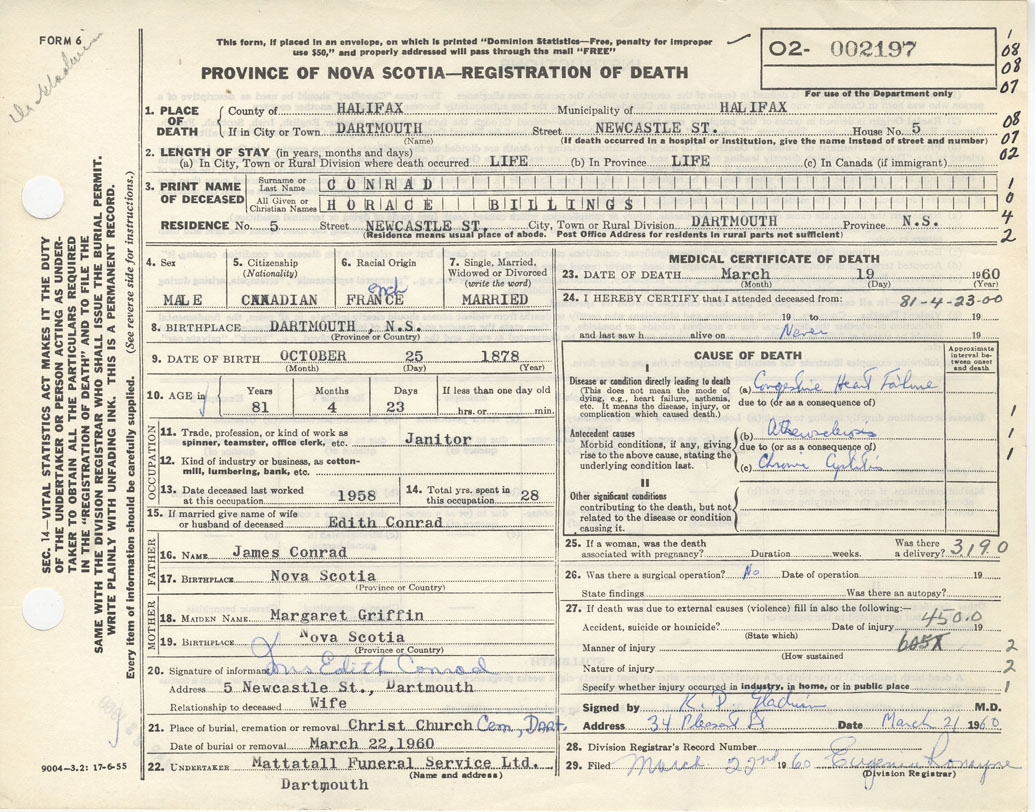 FORM 6
This form, if placed in an envelope, on which is printed "Dominion Statistics—Free, penalty for improper
use $50," and properly addressed will pass through the mail "FREE"
PROVINCE OF NOVA SCOTIA—REGISTRATION OF DEATH
02- 002197
For use of the Department only
1
08
08
07
08
07
02
1
0
4
2
SEC. 14—VITAL STATISTICS ACT MAKES IT THE DUTY
OF THE UNDERTAKER OR PERSON ACTING AS UNDER-
TAKER TO OBTAIN ALL THE PARTICULARS REQUIRED
IN THE "REGISTRATION OF DEATH" AND TO FILE THE
SAME WITH THE DIVISION REGISTRAR WHO SHALL ISSUE THE BURIAL PERMIT.
WRITE PLAINLY WITH UNFADING INK. THIS IS A PERMANENT RECORD.
Every item of information should be carefully supplied. (See reverse side for instructions.)
1. PLACE OF DEATH
County of HALIFAX Municipality of HALIFAX
If in City or Town DARTMOUTH Street NEWCASTLE ST. House No. 5
(Name) (If death occurred in a hospital or institution, give the name instead of street and number)
2. LENGTH OF STAY (in years, months and days)
(a) In City, Town or Rural Division where death occurred LIFE (b) In Province LIFE (c) In Canada (if immigrant)
3. PRINT NAME OF DECEASED
Surname or Last Name CONRAD
All Given or Christian Names HORACE BILLINGS
RESIDENCE No. 5 Street NEWCASTLE ST. City, Town or Rural Division DARTMOUTH Province N.S.
(Residence means usual place of abode. Post Office Address for residents in rural parts not sufficient)
4. Sex
MALE
5. Citizenship
(Nationality)
CANADIAN
6. Racial Origin
FRANCE ench
7. Single, Married,
Widowed or Divorced
(write the word)
MARRIED
8. BIRTHPLACE DARTMOUTH , N.S.
(Province or Country)
9. DATE OF BIRTH OCTOBER 25 1878
(Month) (Day) (Year)
10. AGE in
Years Months Days If less than one day old
81 4 23 hrs. or min.
OCCUPATION
11. Trade, profession, or kind of work as
spinner, teamster, office clerk, etc. Janitor
12. Kind of industry or business, as cotton-
mill, lumbering, bank, etc.
13. Date deceased last worked
at this occupation 1958
14. Total yrs. spent in
this occupation 28
15. If married give name of wife
or husband of deceased Edith Conrad
FATHER
16. NAME James Conrad
17. BIRTHPLACE Nova Scotia
(Province or Country)
MOTHER
18. MAIDEN NAME Margaret Griffin
19. BIRTHPLACE Nova Scotia
(Province or Country)
20. Signature of informant Mrs Edith Conrad
Address 5 Newcastle St., Dartmouth
Relationship to deceased Wife
21. Place of burial, cremation or removal Christ Church Cem, Dart.
Date of burial or removal March 22,1960
22. UNDERTAKER Mattatall Funeral Service Ltd.
(Name and address)
Dartmouth
9004-3.2: 17-6-55
MEDICAL CERTIFICATE OF DEATH
23. DATE OF DEATH March 19 1960
(Month) (Day) (Year)
24. I HEREBY CERTIFY that I attended deceased from: 81-4-23-00
19 to 19
and last saw h alive on Never 19
CAUSE OF DEATH
Approximate interval be-tween onset and death
I
Disease or condition directly leading to death
(This does not mean the mode of
dying, e.g., heart failure, asthenia,
etc. It means the disease, injury, or
complication which caused death.)
(a) Congestive Heart Failure
due to (or as a consequence of)
Antecedent causes
Morbid conditions, if any, giving
rise to the above cause, stating the
underlying condition last.
(b) Atherosclerosis
due to (or as a consequence of)
(c) Chronic Cystitis
1
1
1
II
Other significant conditions
contributing to the death, but not
related to the disease or condition
causing it.
25. If a woman, was the death
associated with pregnancy? Duration weeks. Was there
a delivery? 3190
26. Was there a surgical operation? No Date of operation 19
State findings Was there an autopsy?
27. If death was due to external causes (violence) fill in also the following:—
Accident, suicide or homicide? Date of injury 19
450.0
(State which)
Manner of injury 605X 2
(How sustained
Nature of injury 2
Specify whether injury occurred in industry, in home, or in public place 1
Signed by M.D.
Address 34 Pleasant St Date March 21 1960
28. Division Registrar's Record Number
29. Filed March 22nd 1960
(Division Registrar)